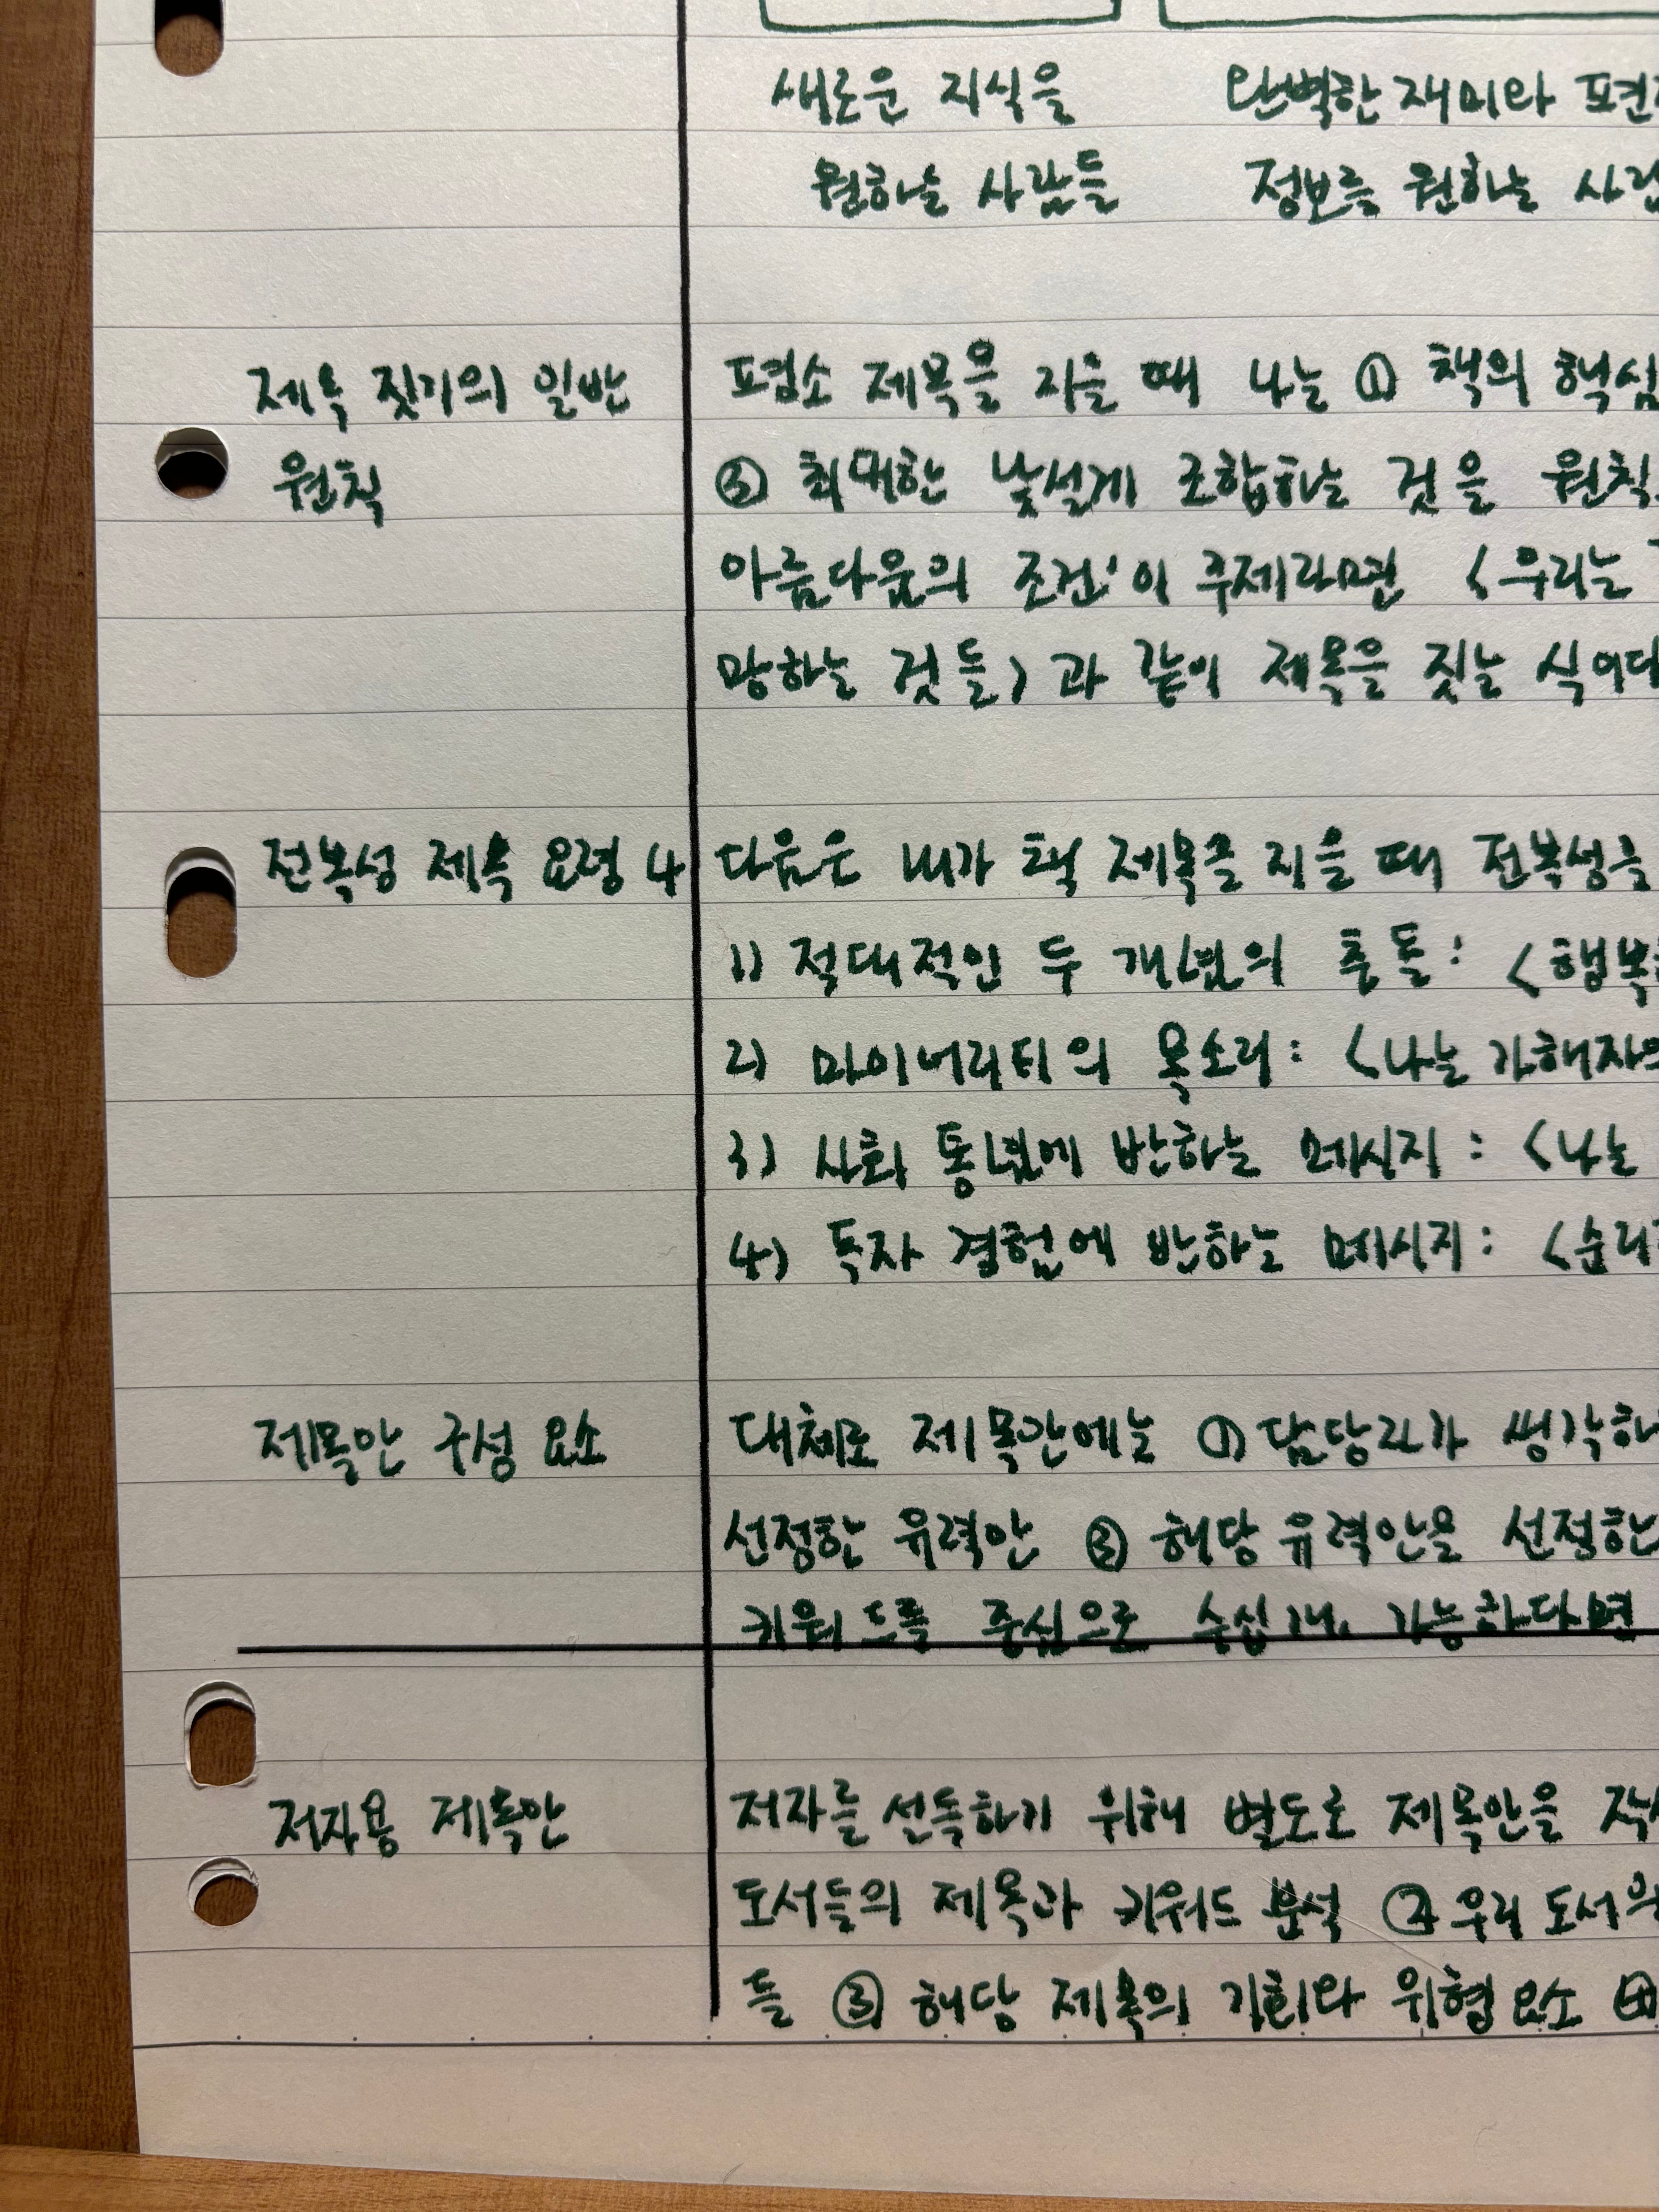 새로운 지식을 완벽한 재미와
원하는 사람들 정보를 원하는
제목 짓기의 일반 평소 제목을 지을 때 나는 ① 책의 핵심
원칙 ② 최대한 낯설게 조합하는 것을 원칙
아름다움의 조건'이 주제라면 <우리는
망하는 것들>과 같이 제목을 짓는 식이다
전복성 제목 요령 4 다음은 내가 책 제목을 지을 때 전복성을
1) 적대적인 두 개념의 충돌: <행복
2) 마이너리티의 목소리: <나는 가해자의
3) 사회 통념에 반하는 메시지: <나는
4) 독자 경험에 반하는 메시지: <순리
제목안 구성 요소 대체로 제목안에는 ① 담당자가 생각하
선정한 유력안 ② 해당 유력안을 선정한
키워드를 중심으로 수십 개. 가능하다면
저자용 제목안 저자를 설득하기 위해 별도로 제목안을
도서들의 제목과 키워드 분석 ② 우리 도서의
들 ③ 해당 제목의 기회와 위협 요소 ④